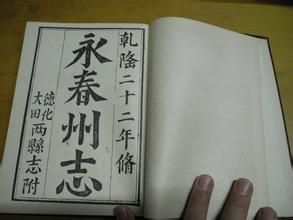 乾隆二十二年脩
永春州志
德化
大田
两縣志附